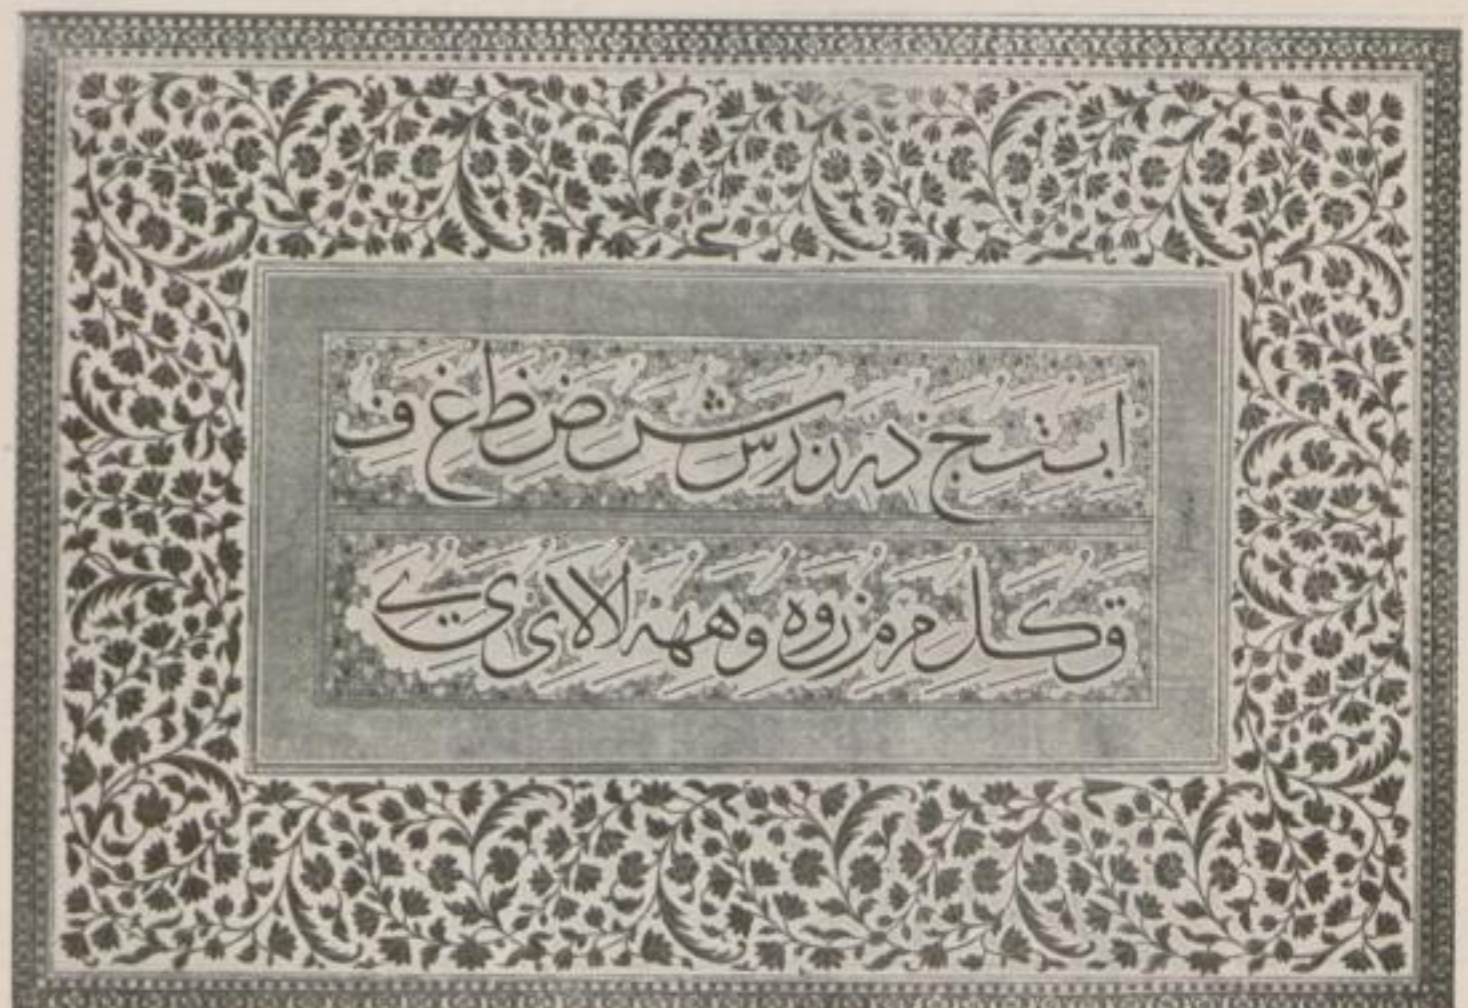 ا بتج د ذ ر ز س ش ص ض ط ع ف
ق ک ل م م ز و ه و هه لا لا ی ی ے